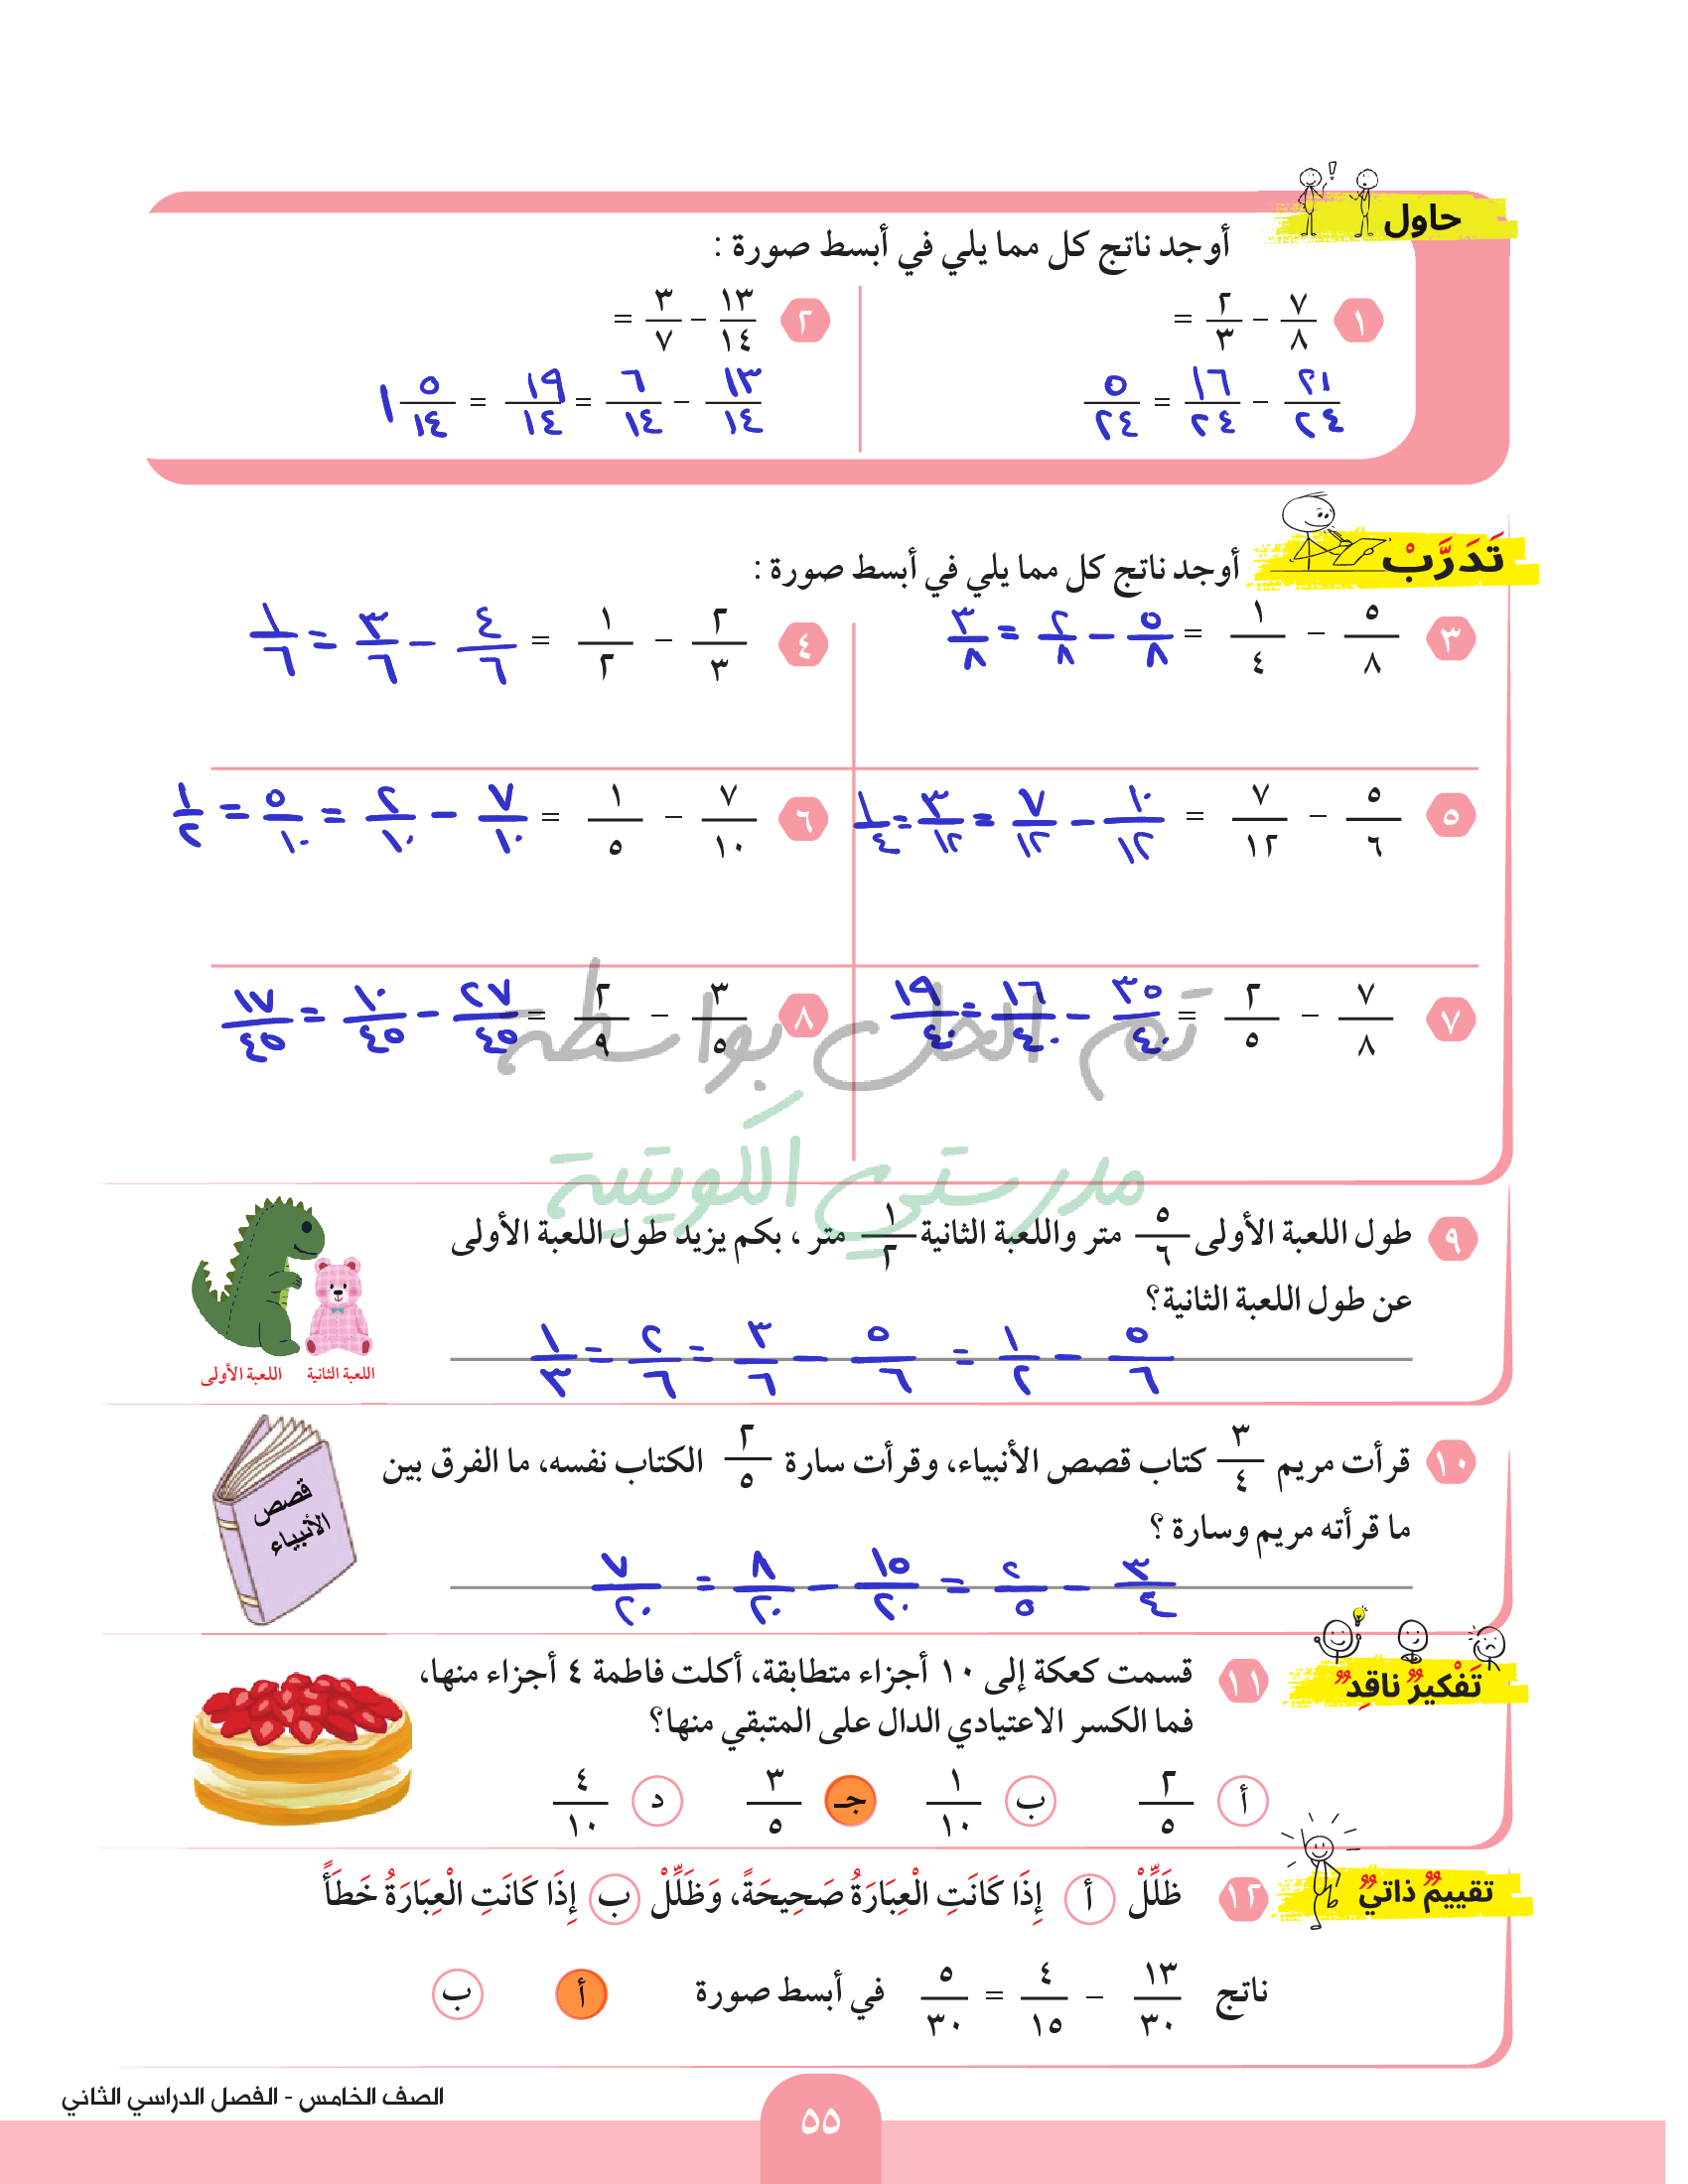 حاول
أوجد ناتج كل مما يلي في أبسط صورة :
١ ٧/٨ − ٢/٣ =
٢١/٢٤ − ١٦/٢٤ = ٥/٢٤
٢ ١٣/١٤ − ٣/٧ =
١٣/١٤ − ٦/١٤ = ١٩/١٤ = ١ ٥/١٤
تَدَرَّبْ
أوجد ناتج كل مما يلي في أبسط صورة :
٣ ٥/٨ − ١/٤ = ٥/٨ − ٢/٨ = ٣/٨
٤ ٢/٣ − ١/٢ = ٤/٦ − ٣/٦ = ١/٦
٥ ٥/٦ − ٧/١٢ = ١٠/١٢ − ٧/١٢ = ٣/١٢ = ١/٤
٦ ٧/١٠ − ١/٥ = ٧/١٠ − ٢/١٠ = ٥/١٠ = ١/٢
٧ ٧/٨ − ٢/٥ = ٣٥/٤٠ − ١٦/٤٠ = ١٩/٤٠
٨ ٣/٥ − ٢/٩ = ٢٧/٤٥ − ١٠/٤٥ = ١٧/٤٥
تم الحل بواسطة
مدرستي الكويتية
٩ طول اللعبة الأولى ٥/٦ متر واللعبة الثانية ١/٢ متر ، بكم يزيد طول اللعبة الأولى
عن طول اللعبة الثانية؟
٥/٦ − ١/٢ = ٥/٦ − ٣/٦ = ٢/٦ = ١/٣
اللعبة الثانية
اللعبة الأولى
١٠ قرأت مريم ٣/٤ كتاب قصص الأنبياء، وقرأت سارة ٢/٥ الكتاب نفسه، ما الفرق بين
ما قرأته مريم وسارة ؟
٣/٤ − ٢/٥ = ١٥/٢٠ − ٨/٢٠ = ٧/٢٠
قصص
الأنبياء
تَفْكيرٌ ناقِدٌ
١١ قسمت كعكة إلى ١٠ أجزاء متطابقة، أكلت فاطمة ٤ أجزاء منها،
فما الكسر الاعتيادي الدال على المتبقي منها؟
أ ٢/٥ ب ١/١٠ جـ ٣/٥ د ٤/١٠
تقييمٌ ذاتيٌّ
١٢ ظَلِّلْ أ إِذَا كَانَتِ الْعِبَارَةُ صَحِيحَةً، وَظَلِّلْ ب إِذَا كَانَتِ الْعِبَارَةُ خَطَأً
ناتج ١٣/٣٠ − ٤/١٥ = ٥/٣٠ في أبسط صورة أ ب
الصف الخامس - الفصل الدراسي الثاني
٥٥